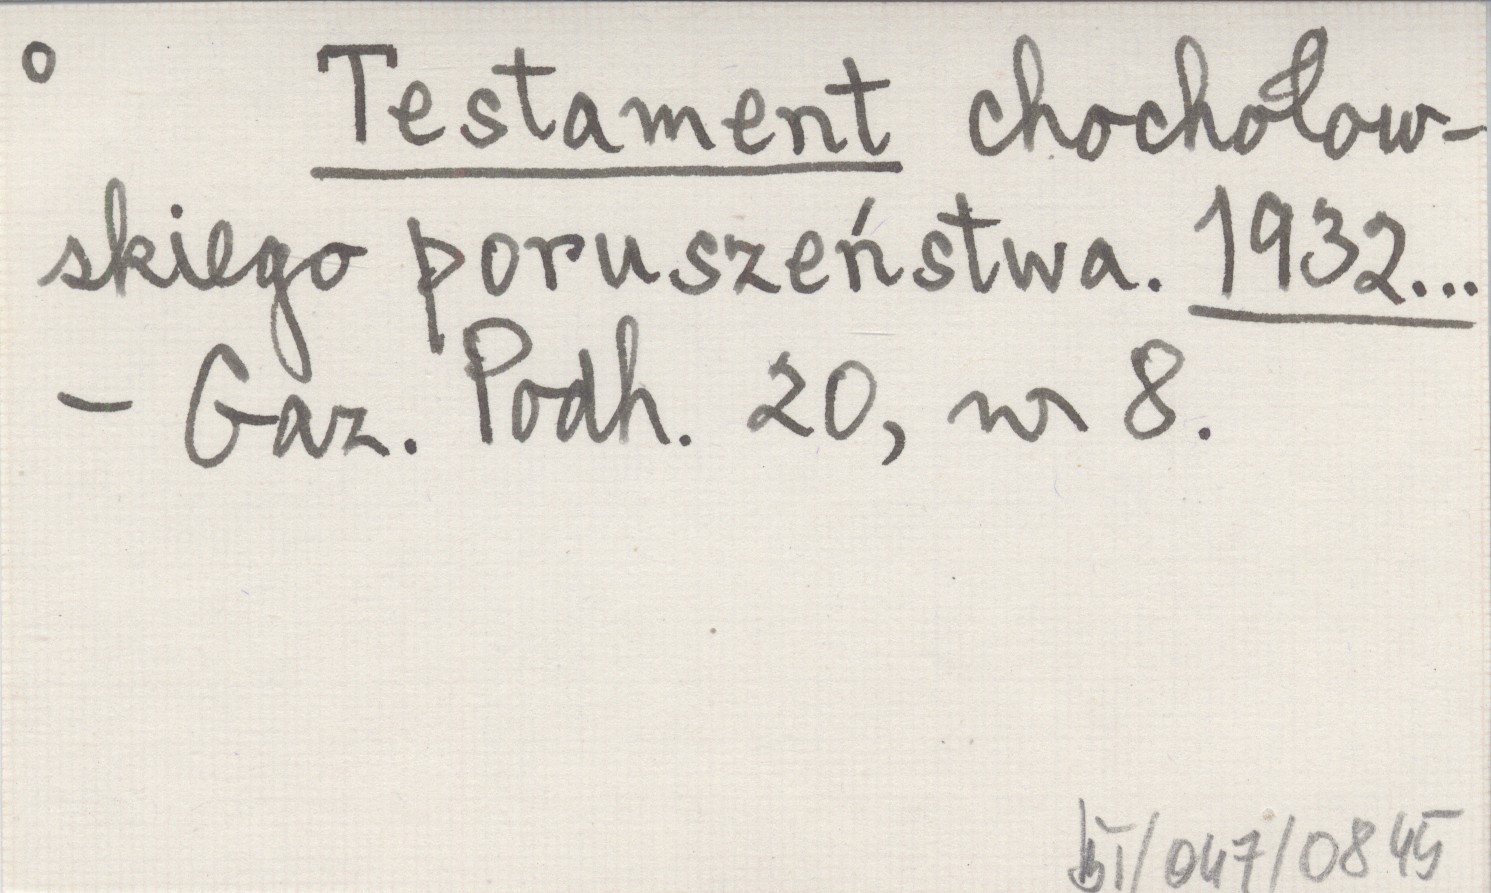 o Testament chochołow-
skiego poruszeństwa. 1932...
- Gaz. Podh. 20, nr 8.
/047/0845